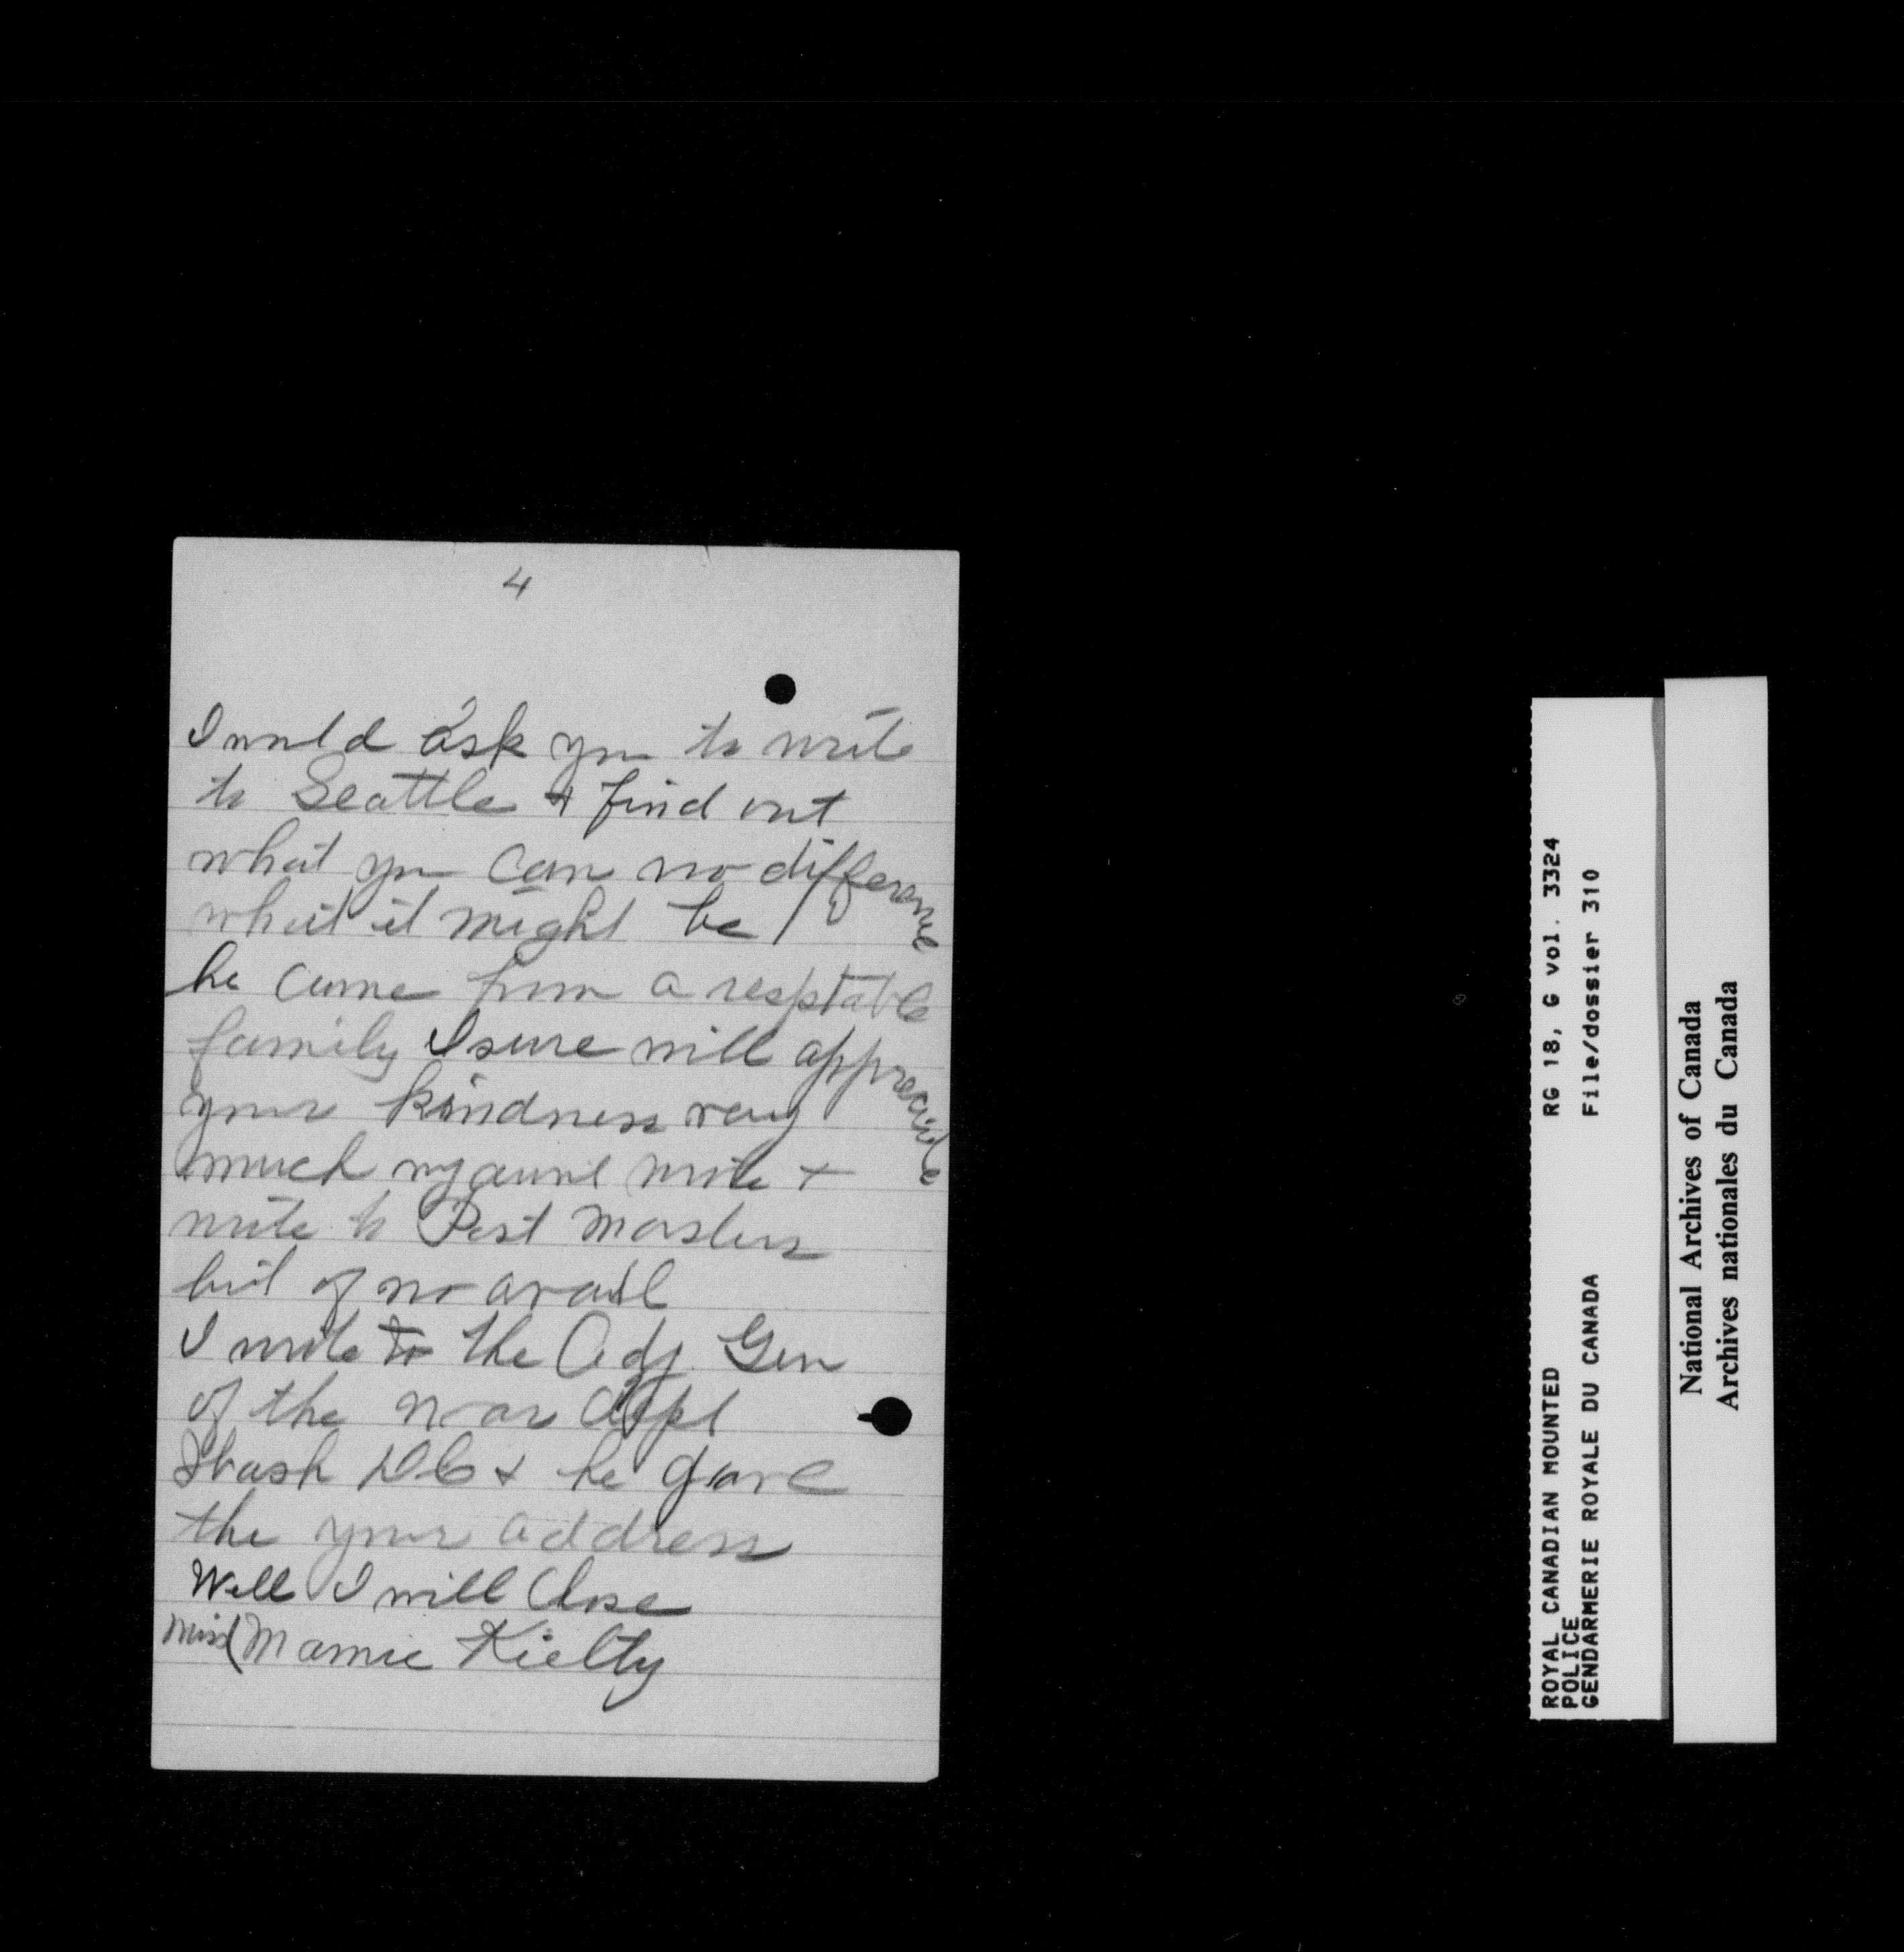 4
I would ask you to write
to Seattle & find out
what you can no difference
what it might be
he came from a resptable
family I sure will appreciate
your kindness very
much my aunt wrote +
wrote to Post Masters
but of no avail
I wrote to the Adj. Gen
of the war dept
Wash DC & he gave
the your address
Well I will Close
Miss Mamie Kielty
ROYAL CANADIAN MOUNTED RG 18, G vol. 3324
POLICE
GENDARMERIE ROYALE DU CANADA File/dossier 310
National Archives of Canada
Archives nationales du Canada